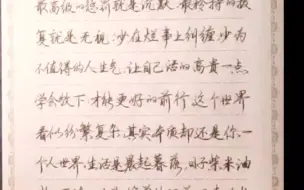 最高级的炫耀就是沉默,最矜持的报
复就是无视,少在烂事上纠缠,少为
不值得的人生气,让自己活的高贵一点
学会放下才能更好的前行,这个世界
看似纷繁复杂,其实本质却还是你,一
个人世界,生活是晨起暮落,日子柴米油